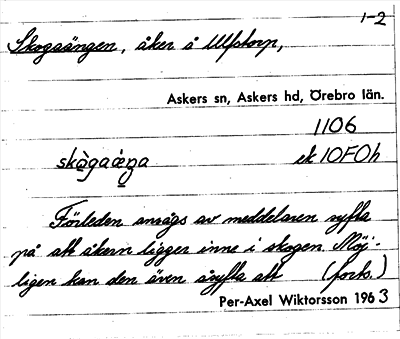 1-2
Skogaängen, åker å Ulfstorp,
Askers sn, Askers hd, Örebro län.
1106
skògaéŋa ek 10F0h
Förleden ansägs av meddelaren syfta
på att åkern ligger inne i skogen. Möj-
ligen kan den även åsyfta att (forts.)
Per-Axel Wiktorsson 1963